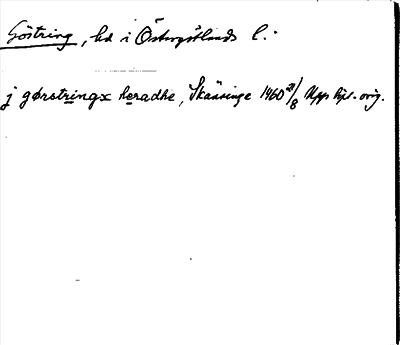 Göstring, hd i Östergötlands l.
j gørstringx heradhe, Skänninge 1460 21/8 Upps bpl. orig.